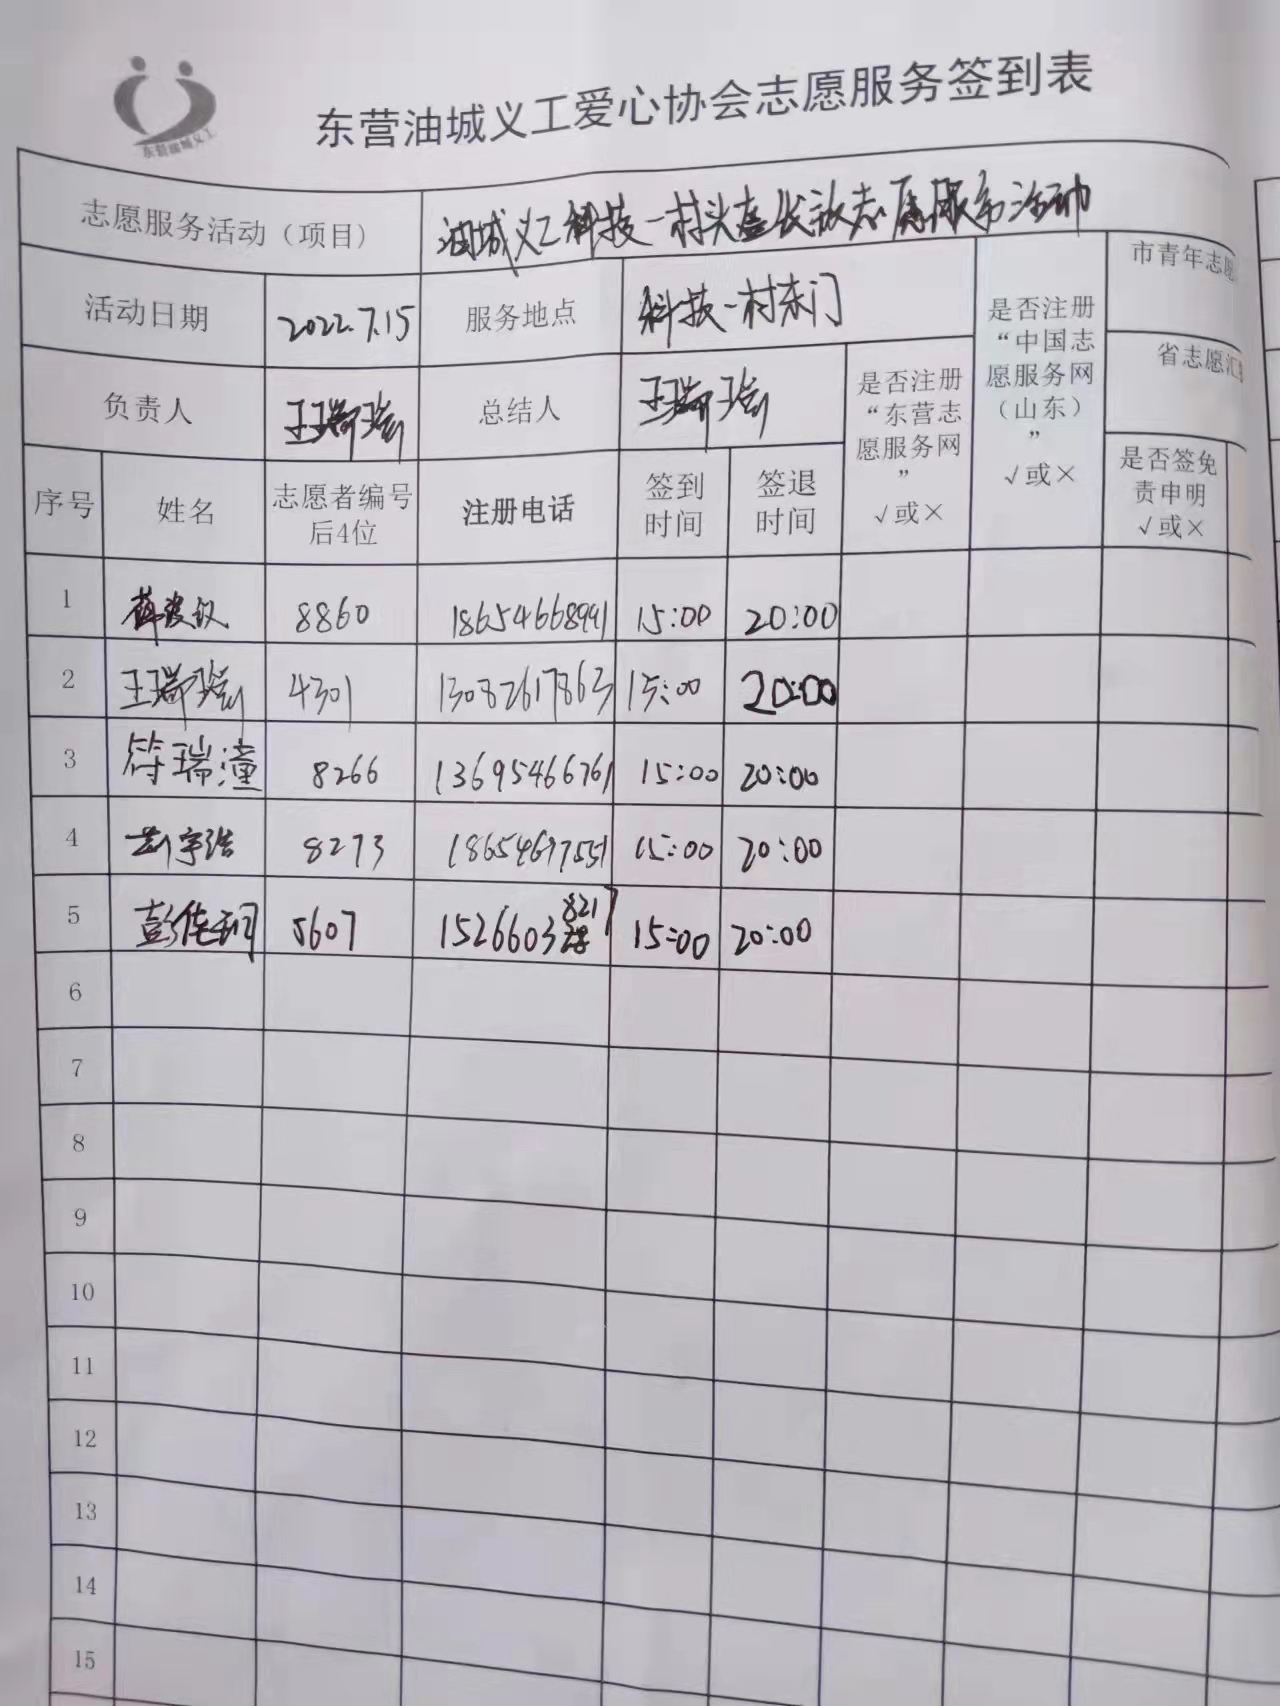 东营油城义工
东营油城义工爱心协会志愿服务签到表
志愿服务活动（项目） 油城义工科技一村头盔长放志愿服务活动
活动日期 2022.7.15 服务地点 科技一村东门
负责人 王瑞瑶 总结人 王瑞瑶
是否注册
“东营志
愿服务网
”
√或×
是否注册
“中国志
愿服务网
（山东）
”
√或×
市青年志愿
省志愿汇
是否签免
责申明
√或×
序号 姓名 志愿者编号
后4位
注册电话 签到
时间
签退
时间
1 8860 18654668991 15:00 20:00
2 王瑞瑶 4301 13082617863 15:00 20:00
3 符瑞潼 8266 13695466761 15:00 20:00
4 宇浩 8273 18654677551 15:00 20:00
5 彭佳玥 5607 15266038217 15:00 20:00
6
7
8
9
10
11
12
13
14
15